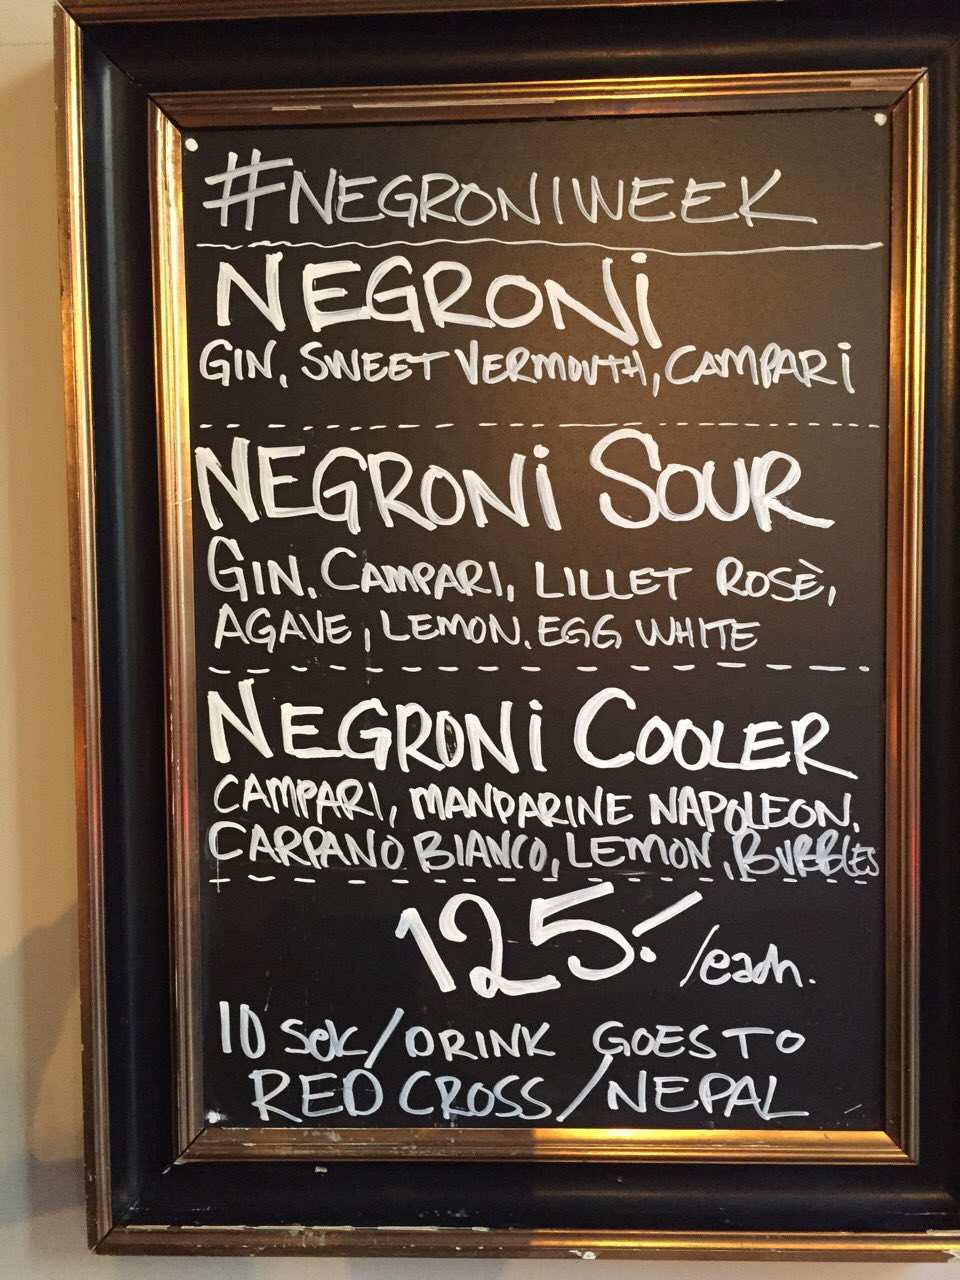 #NEGRONIWEEK
NEGRONi
GIN, SWEET VERMOUTH, CAMPARi
NEGRONi SOUR
GIN, CAMPARI, LILLET ROSÈ,
AGAVE, LEMON, EGG WHITE
NEGRONi COOLER
CAMPARI, MANDARINE NAPOLEON,
CARPANO BIANCO, LEMON, BUBBLES
125:-/each.
10 SEK/DRINK GOES TO
RED CROSS/NEPAL